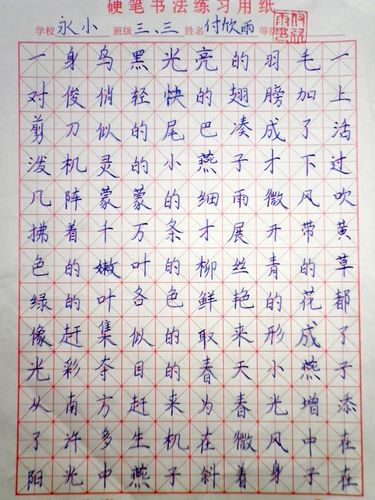 硬笔书法练习用纸
学校 永小 班级 三、三 姓名 付欣雨 等级
一身乌黑光亮的羽毛一
对俊俏轻快的翅膀加上
剪刀似的尾巴凑成了活
泼机灵的小燕子才下过
几阵蒙蒙的细雨微风吹
拂着千万条才展开带黄
色的嫩叶的柳丝青的草
绿的叶各色鲜艳的花都
像赶集似的取来形成了
光彩夺目的春天小燕子
从南方赶来为春光增添
了许多生机在微风中在
阳光中燕子斜着身子在